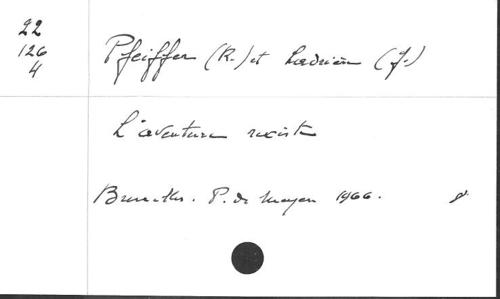 22
126
4
Pfeiffer (R.) et Ladrière (J.)
L'aventure rexiste
Bruxelles. P. de Meyer 1966. 8°